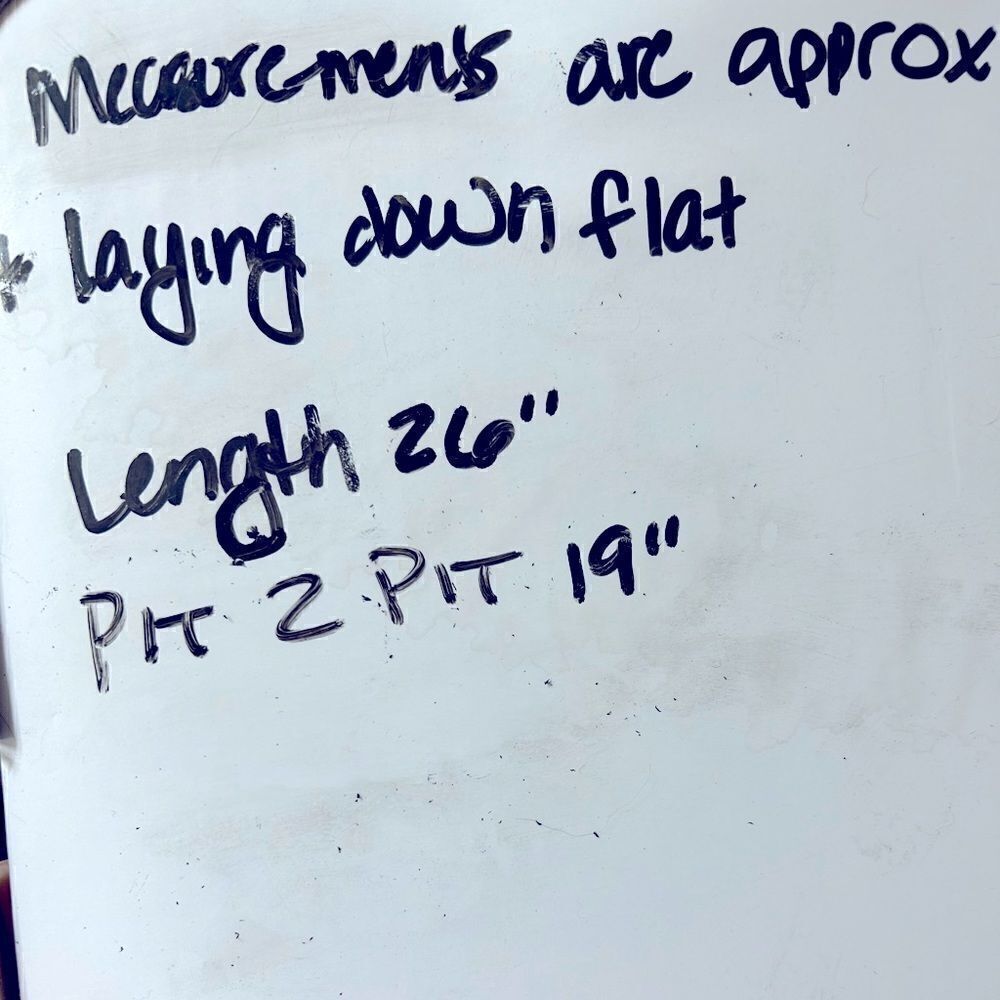 Measurements are approx
* laying down flat
Length 26"
PIT 2 PIT 19"